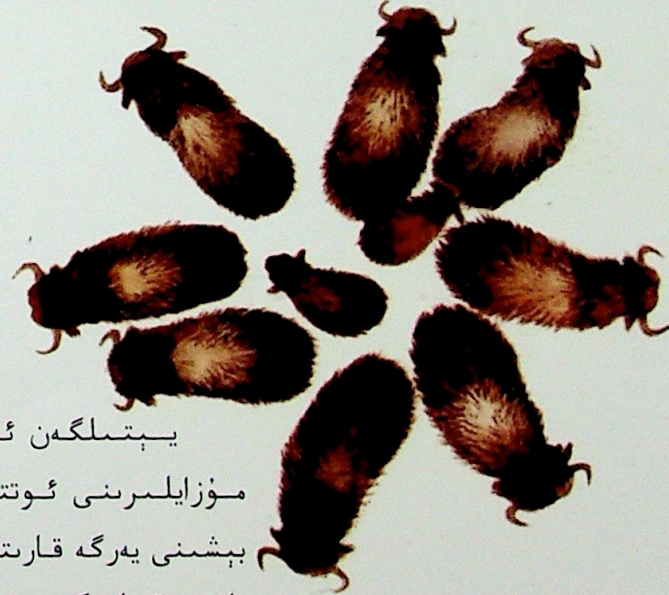 يېتىلگەن
مۇزايلىرىنى ئوتتـ
بېشىنى يەرگە قارىتـ